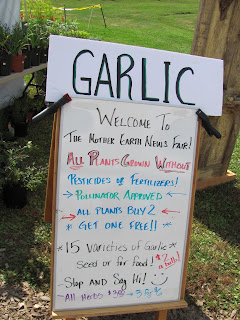 GARLIC
WELCOME TO
THE MOTHER EARTH NEWS FAIR!
ALL PLANTS GROWN WITHOUT
PESTICIDES OR FERTILIZERS!
POLLINATOR APPROVED
ALL PLANTS BUY 2
* GET ONE FREE!! *
*15 VARIETIES OF GARLIC*
SEED OR FOR FOOD!
STOP AND SAY HI!
ALL HERBS